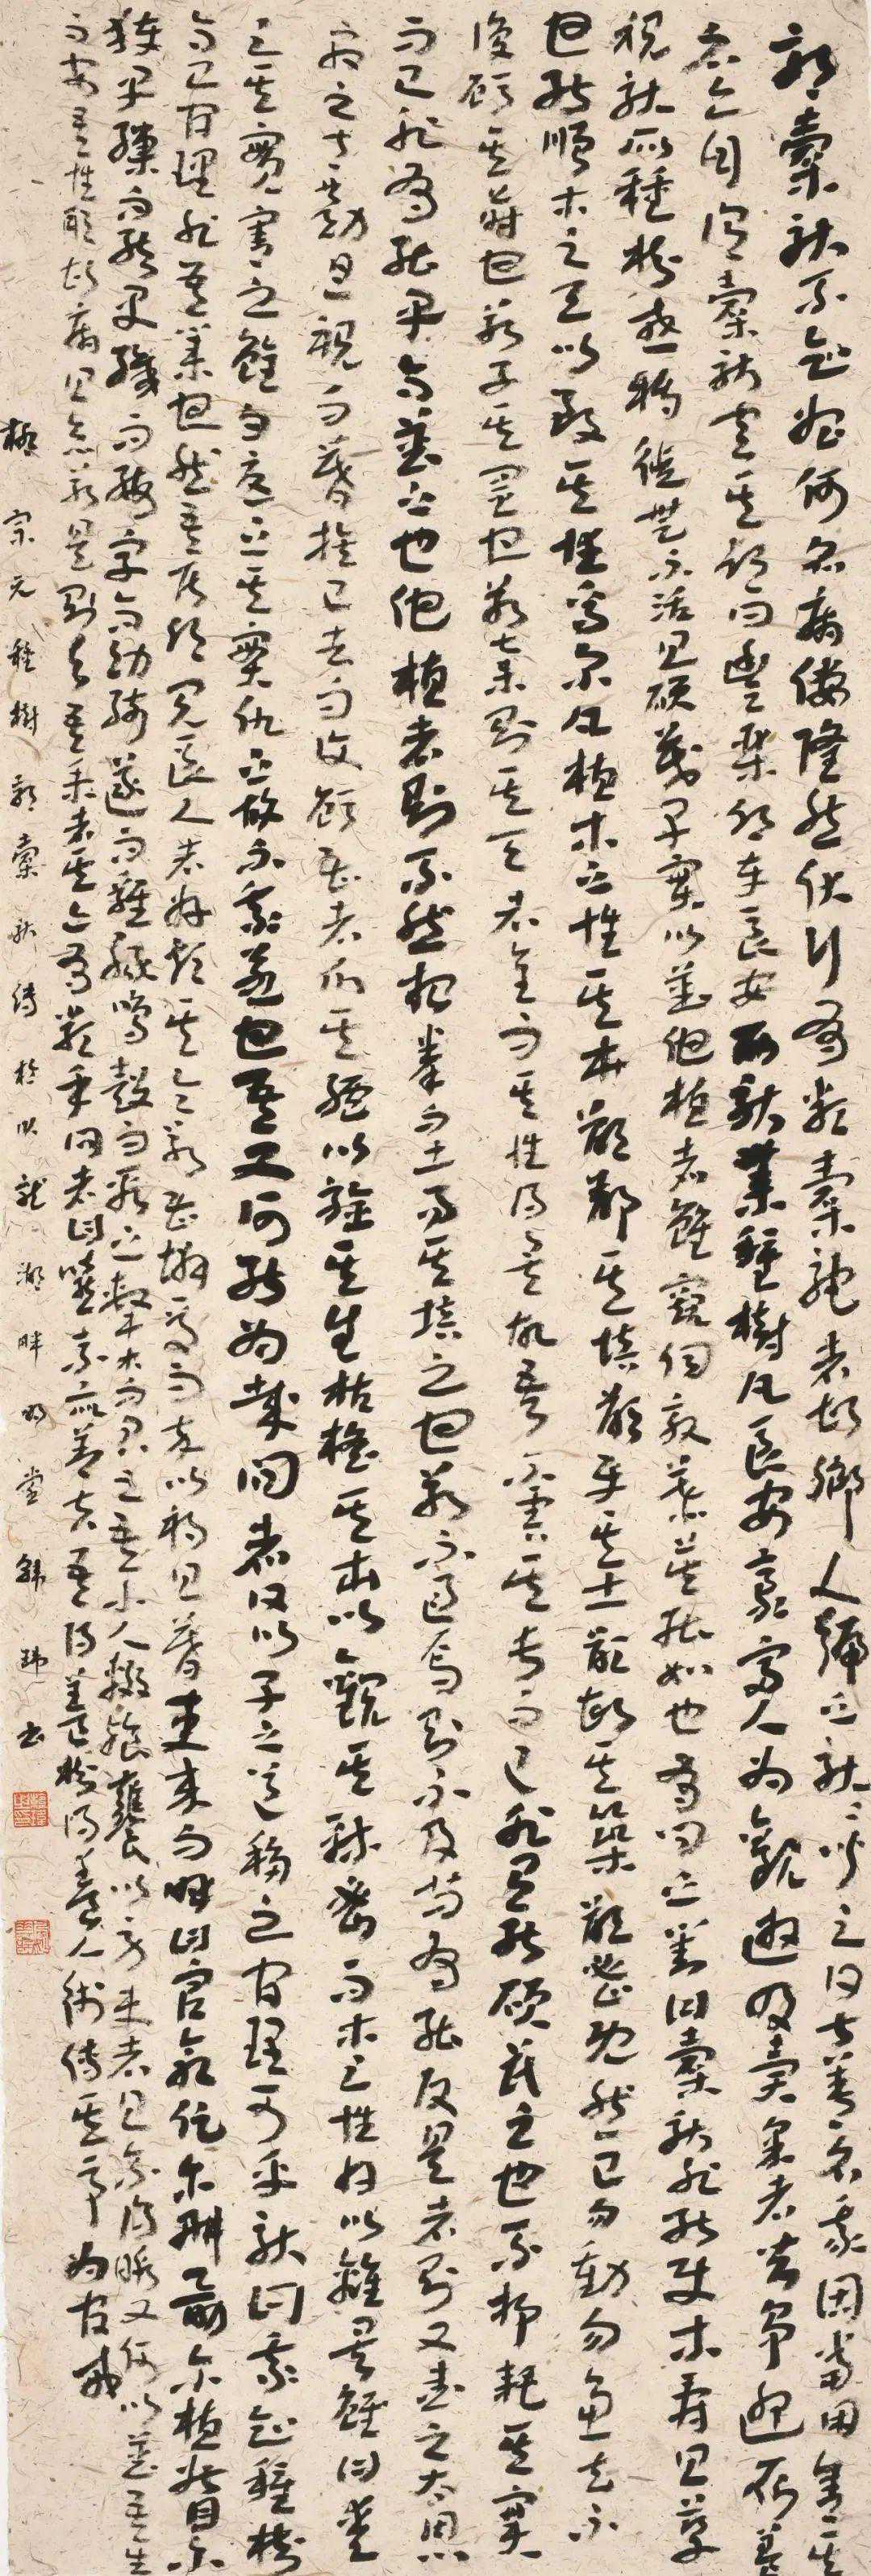 郭橐駝不知始何名病僂隆然伏行有類橐駝者故鄉人號之駝駝聞之曰甚善名我固當因舍其
名亦自謂橐駝云其鄉曰豐樂鄉在長安西駝業種樹凡長安豪富人為觀遊及賣果者皆爭迎取養
視駝所種樹或移徙無不活且碩茂早實以蕃他植者雖窺伺效慕莫能如也有問之對曰橐駝非能使木壽且孳
也能順木之天以致其性焉爾凡植木之性其本欲舒其培欲平其土欲故其築欲密既然已勿動勿慮去不
復顧其蒔也若子其置也若棄則其天者全而其性得矣故吾不害其長而已非有能碩茂之也不抑耗其實
而已非有能早而蕃之也他植者則不然根拳而土易其培之也若不過焉則不及苟有能反是者則又愛之太恩
憂之太勤旦視而暮撫已去而復顧甚者爪其膚以驗其生枯搖其本以觀其疏密而木之性日以離矣雖曰愛
之其實害之雖曰憂之其實仇之故不我若也吾又何能為哉問者曰以子之道移之官理可乎駝曰我知種樹
而已官理非吾業也然吾居鄉見長人者好煩其令若甚憐焉而卒以禍旦暮吏來而呼曰官命促爾耕勖爾植督爾
獲早繅而緒早織而縷字而幼孩遂而雞豚鳴鼓而聚之擊木而召之吾小人輟飧饔以勞吏者且不得暇又何以蕃吾生
而安吾性耶故病且怠若是則與吾業者其亦有類乎問者曰嘻不亦善夫吾問養樹得養人術傳其事以為官戒
柳宗元種樹郭橐駝傳 龍湖畔 堂韓瑋書